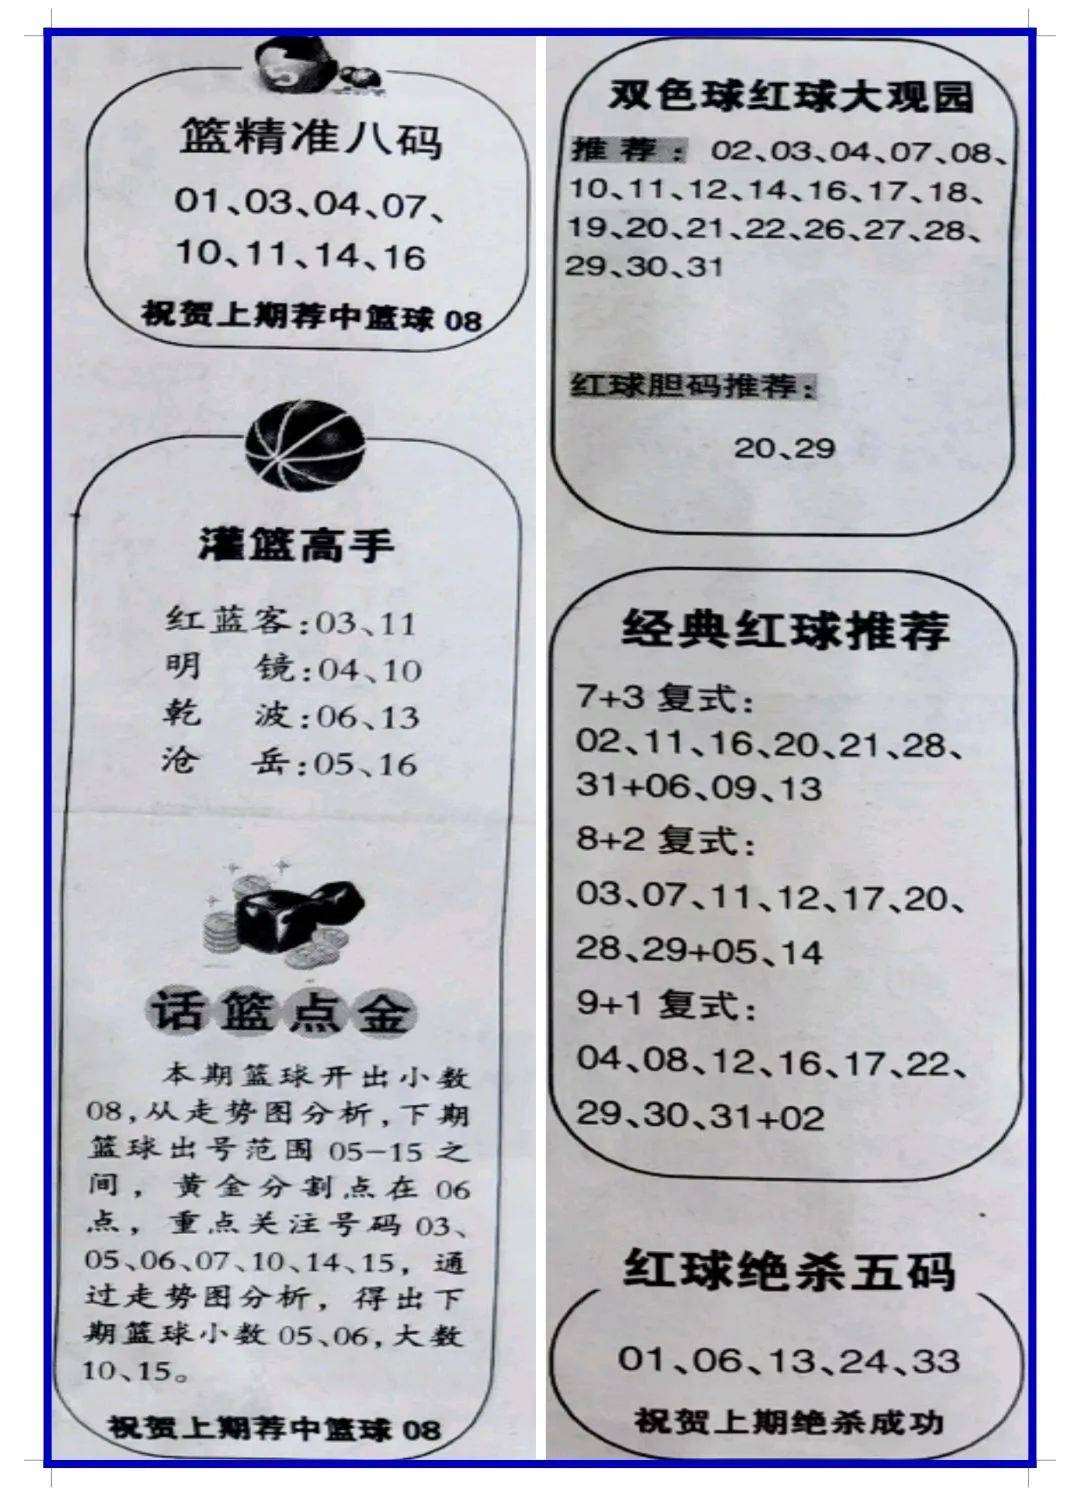 篮精准八码
01、03、04、07、
10、11、14、16
祝贺上期荐中篮球 08
灌篮高手
红蓝客:03、11
明 镜:04、10
乾 波:06、13
沧 岳:05、16
话篮点金
本期篮球开出小数
08,从走势图分析,下期
篮球出号范围 05-15 之
间，黄金分割点在 06
点，重点关注号码 03、
05、06、07、10、14、15，通
过走势图分析，得出下
期篮球小数 05、06,大数
10、15。
祝贺上期荐中篮球 08
双色球红球大观园
推荐：02、03、04、07、08、
10、11、12、14、16、17、18、
19、20、21、22、26、27、28、
29、30、31
红球胆码推荐：
20、29
经典红球推荐
7+3 复式：
02、11、16、20、21、28、
31+06、09、13
8+2 复式：
03、07、11、12、17、20、
28、29+05、14
9+1 复式：
04、08、12、16、17、22、
29、30、31+02
红球绝杀五码
01、06、13、24、33
祝贺上期绝杀成功